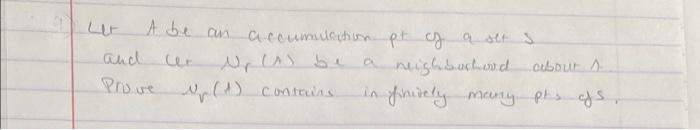 9) Let A be an accumulation pt of a set S
and let Nr(A) be a neighborhood about A.
Prove Nr(A) contains infinitely many pts of S.